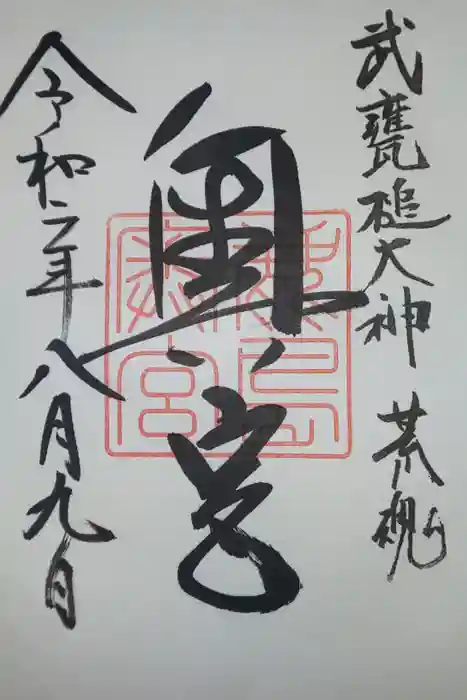 武甕槌大神 荒魂
奥宮
鹿島
奥宮
令和二年八月九日